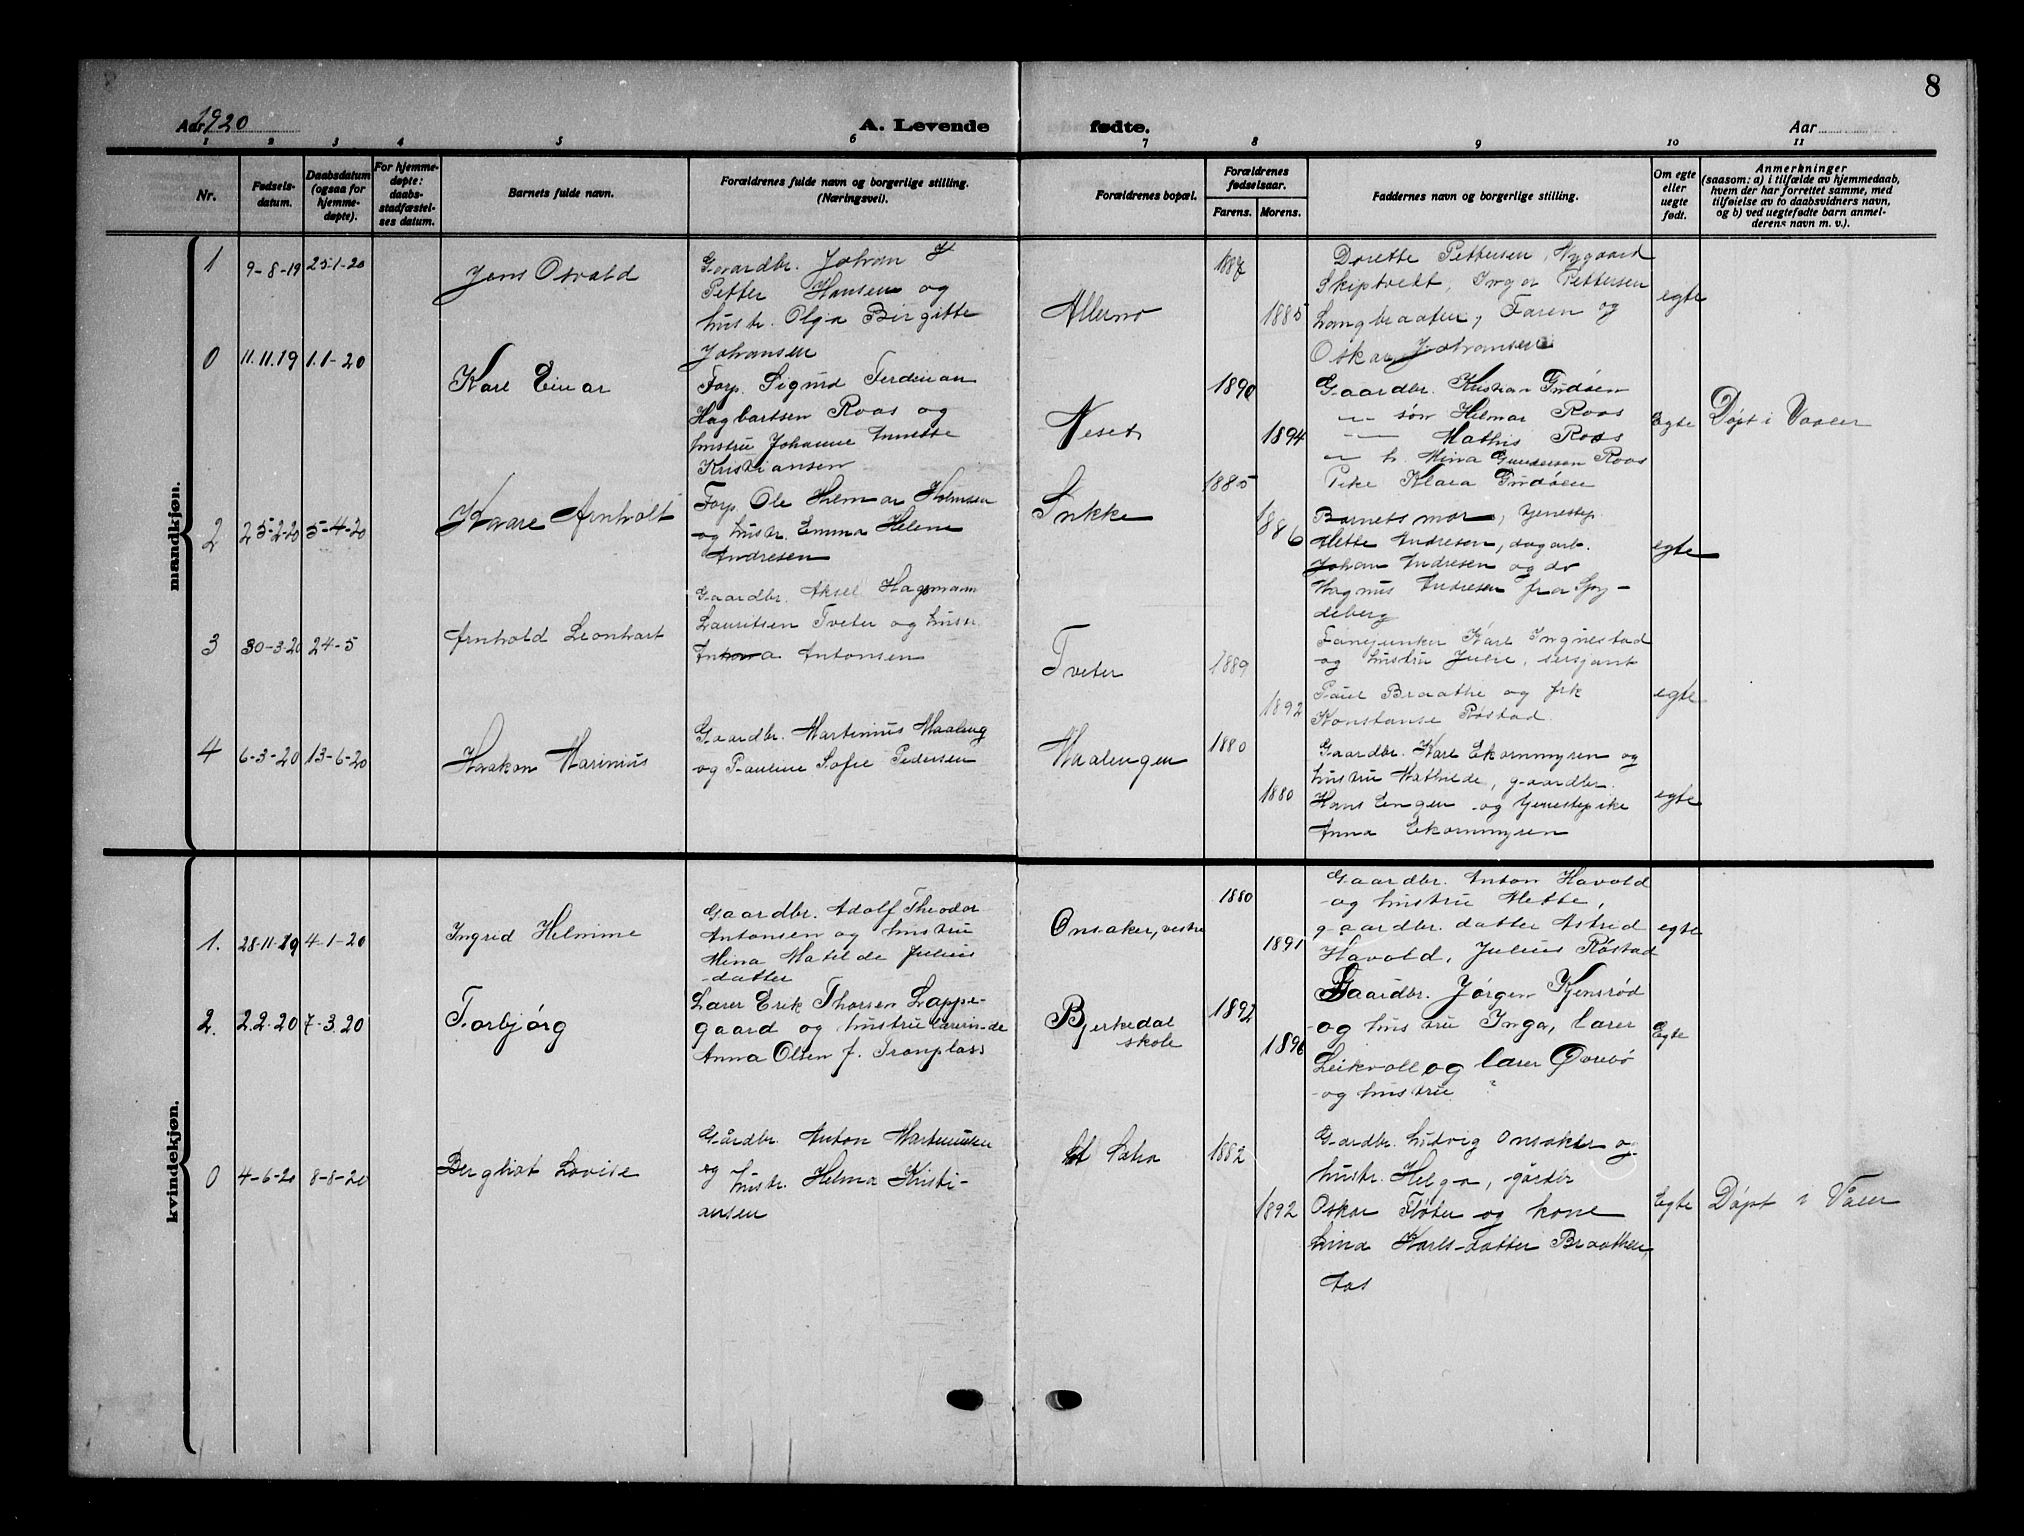 8
Aar 1920
A. Levende
fødte.
Aar
1 2 3 4 5 6 7 8 9 10 11
Nr.
Fødsels-
datum.
Daabsdatum
(ogsaa for
hjemme-
døpte).
For hjemme-
døpte:
daabs-
stadfæstel-
ses datum.
Barnets fulde navn.
Forældrenes fulde navn og borgerlige stilling.
(Næringsvei).
Forældrenes bopæl.
Forældrenes
fødselsaar.
Farens. Morens.
Faddernes navn og borgerlige stilling.
Om egte
eller
uegte
født.
Anmerkninger
(saasom: a) i tilfælde av hjemmedaab,
hvem der har forrettet samme, med
tilføielse av to daabsvidners navn,
og b) ved uegtefødte barn anmel-
derens navn m. v.).
mandkjøn.
1
9-8-19
25-1-20
Jens Osvald
Gaardbr. Johan
Petter Hansen og
hustr. Olga Birgitte
Johansen
1885
Dorette Pettersen, Nygaard
Skiptvedt, Inga Pettersen
Langbraaten, Faren og
Oskar Johansen
egte
0
11.11.19
1.1-20
Karl Einar
Forp. Sigurd Ferdinan
Hagbartsen Roos og
hustru Johanne Annette
Kristiansen
Neset
1890
1894
Gaardbr. Kristian
— søn Helmar Roos
— — Mathis Roos
— h. Mina Gundersen Roos
Pike Klara
Egte
Døpt i Vaaler
2
25-2-20
5-4-20
Kaare Arnholt
Forp. Ole Helmar Holmsen
og hustr. Emma Helene
Andresen
1885
1886
Barnets mor, tjenestep.
Mette Andresen, dagarb.
Johan Andresen og do
Magnus Andresen fra Spy-
deberg
egte
3
30-3-20
24-5
Arnhold Leonhart
Gaardbr. Aksel Hagemann
Lauritsen Tveter og hustr.
Antona Antonsen
Tveter
1889
1892
Fanejunker Karl Ingnestad
og hustru Julie, sersjant
Paul Braathe og frk
Konstanse Røstad.
egte
4
6-3-20
13-6-20
Haakon Marinius
Gaardbr. Martinius Maaleng
og Pauline Sofie Pedersen
Maalengen
1880
1880
Gaardbr. Karl Ekornmyren og
hustru Mathilde, gaardbr.
Hans Engen og tjenestepike
Anna Ekornmyren
egte
kvindekjøn.
1.
28-11-19
4-1-20
Ingrid Helmine
Gaardbr. Adolf Theodor
Antonsen og hustru
Mina Matilde Julius
-datter
Onsaker, vestre
1880
1891
Gaardbr. Anton Havold
og hustru Mette,
gaardbr. datter Astrid
Havold, Julius Røstad
egte
2.
2.2.20
7-3.20
Torbjørg
Lærer Erik Thorsen Lappe-
gaard og hustru lærerin-de
Anna Olsen f. Tronplass
Bjerkedal
skole
1892
1896
Gaardbr. Jørgen Kjensrød
og hustru Inga, lærer
Leikvoll og lærer Øvrebø
og hustru
Egte
0
4-6-20
8-8-20
Bergliot Lovise
Gårdbr. Anton Martinusen
og hustr. Helma Kristi-
ansen
1882
1892
Gardbr. Ludvig Onsaker og
hustr. Helga, gårdbr
Oskar Fløter og kone
Lina Karls-datter Braathen
Aas
Egte
Døpt i Våler